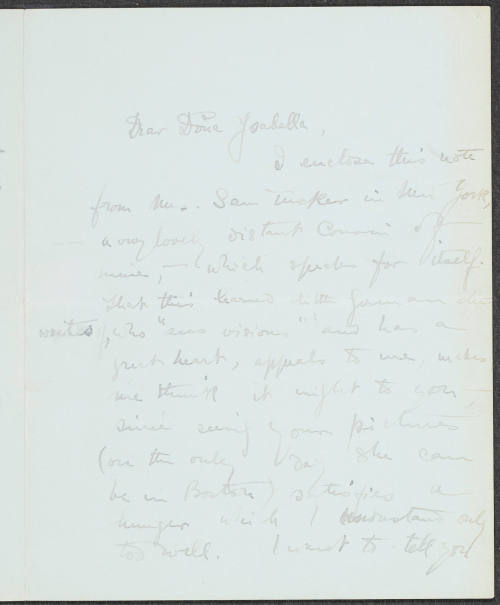 Dear Doña Ysabella,
I enclose this note
from Mrs. Sam in New York,
a very lovely distant Cousin of
mine, — which speaks for itself.
That this learned little German
writes, who "sees visions" and has a
great heart, appeals to me, makes
me think it might to you —
since seeing your pictures
(on the only day she can
be in Boston) satisfies a
hunger which I understand only
too well. I want to tell you